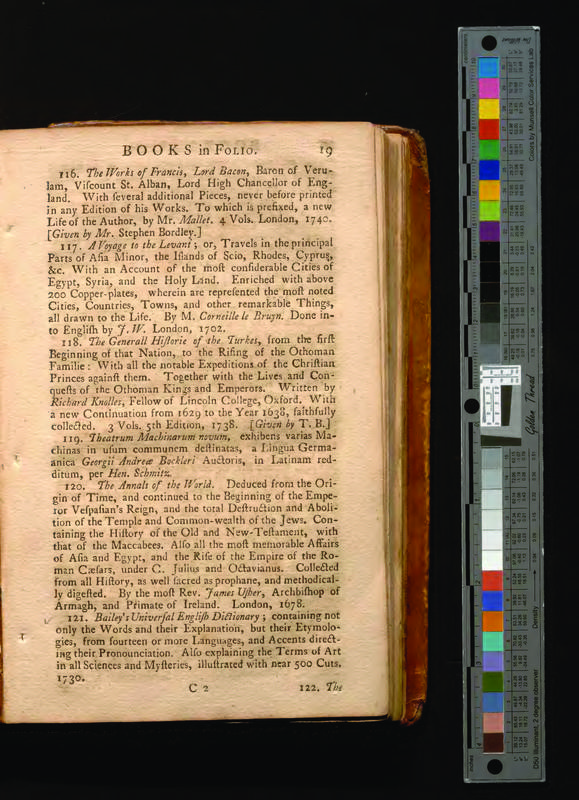 BOOKS in FOLIO. 19
116. The Works of Francis, Lord Bacon, Baron of Veru-
lam, Viſcount St. Alban, Lord High Chancellor of Eng-
land. With ſeveral additional Pieces, never before printed
in any Edition of his Works. To which is prefixed, a new
Life of the Author, by Mr. Mallet. 4 Vols. London, 1740.
[Given by Mr. Stephen Bordley.]
117. A Voyage to the Levant; or, Travels in the principal
Parts of Aſia Minor, the Iſlands of Scio, Rhodes, Cyprus,
&c. With an Account of the moſt conſiderable Cities of
Egypt, Syria, and the Holy Land. Enriched with above
200 Copper-plates, wherein are repreſented the moſt noted
Cities, Countries, Towns, and other remarkable Things,
all drawn to the Life. By M. Corneille le Bruyn. Done in-
to Engliſh by J. W. London, 1702.
118. The Generall Hiſtorie of the Turkes, from the firſt
Beginning of that Nation, to the Riſing of the Othoman
Familie: With all the notable Expeditions of the Chriſtian
Princes againſt them. Together with the Lives and Con-
queſts of the Othoman Kings and Emperors. Written by
Richard Knolles, Fellow of Lincoln College, Oxford. With
a new Continuation from 1629 to the Year 1638, faithfully
collected. 3 Vols. 5th Edition, 1738. [Given by T. B.]
119. Theatrum Machinarum novum, exhibens varias Ma-
chinas in uſum communem deſtinatas, a Lingua Germa-
anica Georgii Andreæ Bockleri Auctoris, in Latinam red-
ditum, per Hen. Schmitz.
120. The Annals of the World. Deduced from the Ori-
gin of Time, and continued to the Beginning of the Empe-
ror Veſpaſian's Reign, and the total Deſtruction and Aboli-
tion of the Temple and Common-wealth of the Jews. Con-
taining the Hiſtory of the Old and New-Teſtament, with
that of the Maccabees. Alſo all the moſt memorable Affairs
of Aſia and Egypt, and the Riſe of the Empire of the Ro-
man Cæſars, under C. Julius and Octavianus. Collected
from all Hiſtory, as well ſacred as prophane, and methodical-
ly digeſted. By the moſt Rev. James Uſher, Archbiſhop of
Armagh, and Primate of Ireland. London, 1678.
121. Bailey's Univerſal Engliſh Dictionary; containing not
only the Words and their Explanation, but their Etymolo-
gies, from fourteen or more Languages, and Accents direct-
ing their Pronounciation. Alſo explaining the Terms of Art
in all Sciences and Myſteries, illuſtrated with near 500 Cuts.
1730.
C 2 122. The
Colors by Munsell Color Services Lab
Golden Thread
Density
D50 Illuminant, 2 degree observer
inches